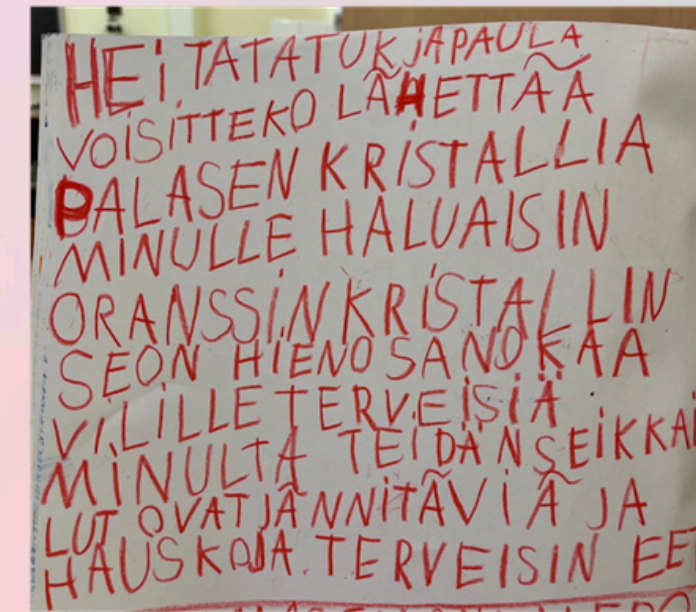 HEI TATATUK JAPAULA
VOISITTEKO LÄHETTÄÄ
PALASEN KRISTALLIA
MINULLE HALUAISIN
ORANSSIN KRISTALLIN
SEON HIENO SANOKAA
VILILLE TERVEISIÄ
MINULTA TEIDÄN SEIKKAI
LUT OVAT JÄNNITÄVIÄ JA
HAUSKOJA. TERVEISIN EET